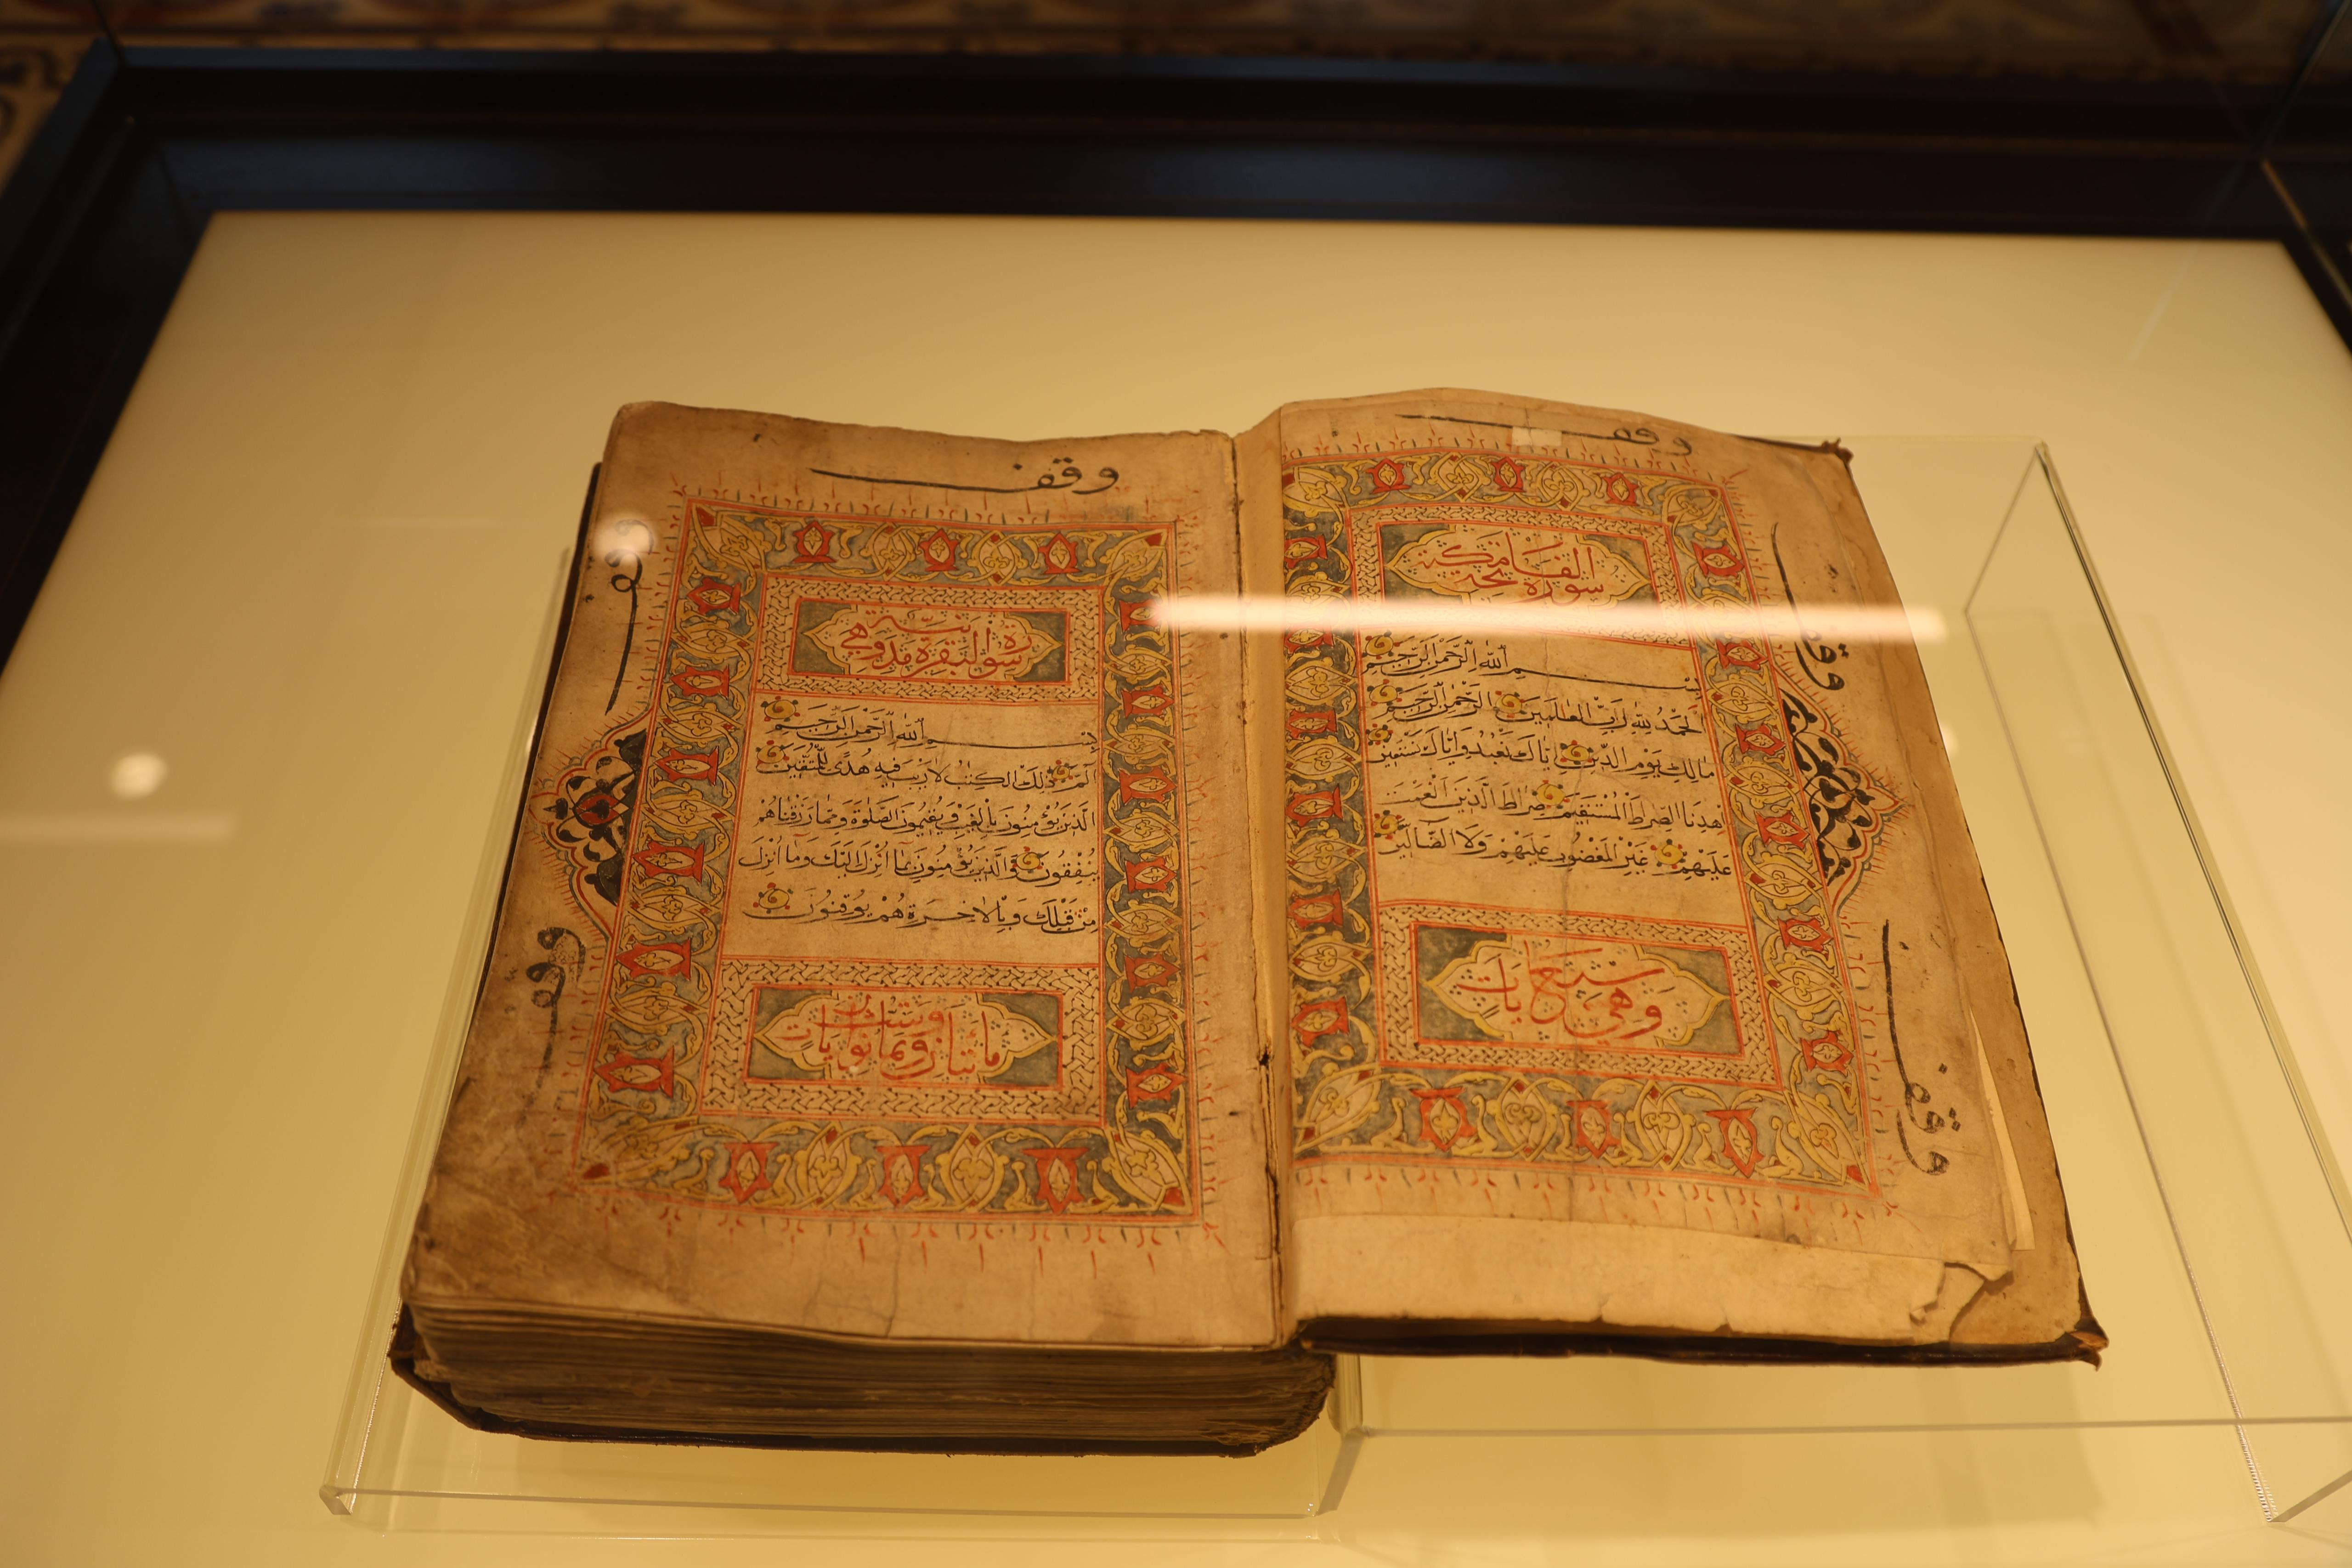 وقف
وقف
وقف
سورة الفا مكية
بحد
بســـم الله الرحمن الرحيم
الحمد لله رب العلمين الرحمن الرحيم
مالك يوم الدين اياك نعبد واياك نستعين
اهدنا الصراط المستقيم صراط الذين انعمت
عليهم غير المغضوب عليهم ولا الضالين
وهي سبع ايات
وقف
وقف
وقف
سورة البقرة مدنية وهي
بســـم الله الرحمن الرحيم
الم ذلك الكتب لا ريب فيه هدى للمتقين
الذين يؤمنون بالغيب ويقيمون الصلوة ومما رزقناهم
ينفقون والذين يؤمنون بما انزل اليك وما انزل
من قبلك وبالاخرة هم يوقنون
مائتان وست وثمانون ايات